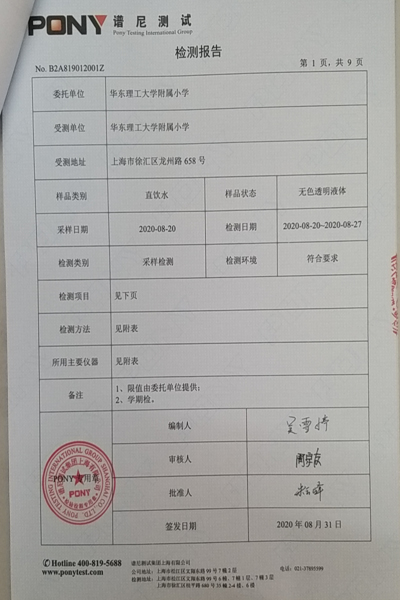 PONY 谱尼测试
Pony Testing International Group
检测报告
No. B2A819012001Z 第 1 页，共 9 页
委托单位 华东理工大学附属小学
受测单位 华东理工大学附属小学
受测地址 上海市徐汇区龙州路 658 号
样品类别 直饮水 样品状态 无色透明液体
采样日期 2020-08-20 检测日期 2020-08-20~2020-08-27
检测类别 采样检测 检测环境 符合要求
检测项目 见下页
检测方法 见附表
所用主要仪器 见附表
备注 1、限值由委托单位提供；
2、学期检。
编制人
审核人
批准人
签发日期 2020 年 08 月 31 日
PONY
Hotline 400-819-5688 谱尼测试集团上海有限公司
www.ponytest.com